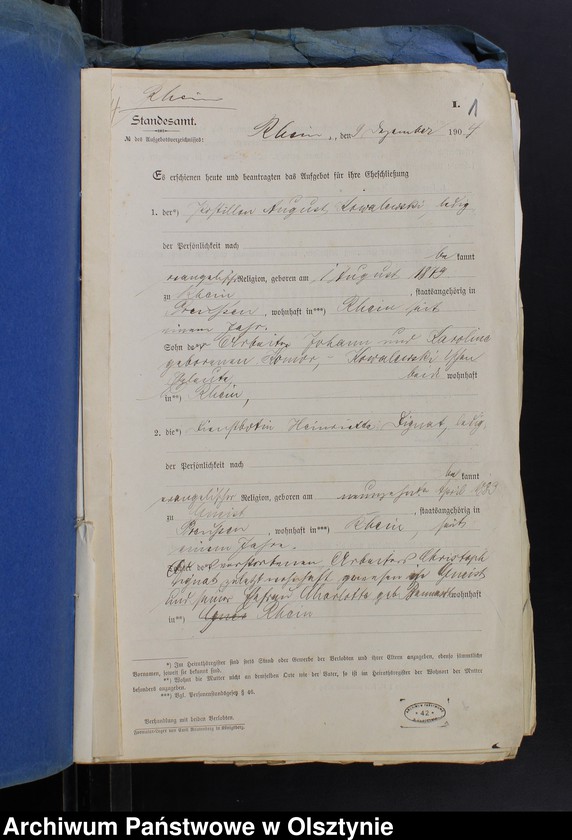 Rhein
Standesamt.
№ des Aufgebotsverzeichnisses:
I. 1
Rhein, den 9 Dezember 1904
Es erschienen heute und beantragten das Aufgebot für ihre Eheschließung
1. der*) August Kowalewski, ledig
der Persönlichkeit nach
be kannt
evangelischer Religion, geboren am 1 August
zu Rhein, staatsangehörig in
Preussen, wohnhaft in***) Rhein seit
einem Jahr.
Sohn der Arbeiter Johann und Karoline
geborenen Komor, – Kowalewski'schen
Eheleute
beide wohnhaft
in**) Rhein,
2. die*) Dienstbotin Heinriette Lignat, ledig
der Persönlichkeit nach
be kannt
evangelischer Religion, geboren am neunzehnten April
zu Gneist, staatsangehörig in
Preussen, wohnhaft in***) Rhein, seit
einem Jahre.
des verstorbenen Arbeiters Christoph
Lignat zuletzt wohnhaft gewesen in Gneist
und seiner Charlotte geb. wohnhaft
in**) Rhein
*) Im Heiratsregister sind stets Stand oder Gewerbe der Verlobten und ihrer Eltern anzugeben, ebenso sämmtliche
Vornamen, soweit sie bekannt sind.
**) Wohnt die Mutter nicht an demselben Orte wie der Vater, so ist im Heiratsregister der Wohnort der Mutter
besonders anzugeben.
***) Vgl. Personenstandsgesetz § 46.
Verhandlung mit beiden Verlobten.
42
Archiwum Państwowe w Olsztynie